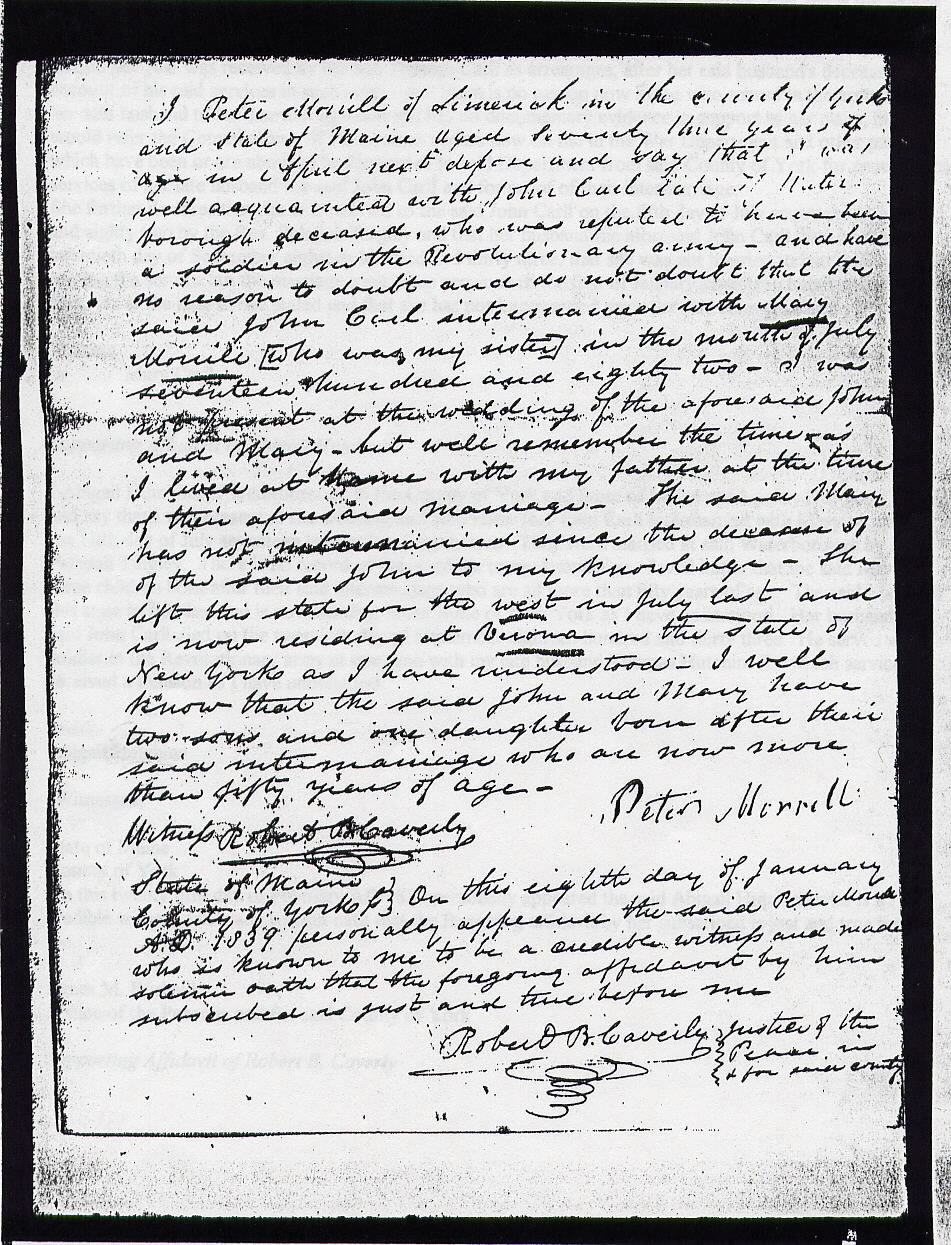 I Peter Morrill of Limerick in the county of York
and State of Maine aged Seventy three years of
age in April next depose and say that I was
well acquainted with John Carl late of Water
borough deceased, who was reputed to have been
a soldier in the Revolutionary army - and have
no reason to doubt and do not doubt that the
said John Carl intermarried with Mary
Morrill [who was my sister] in the month of July
seventeen hundred and eighty two - I was
not present at the wedding of the aforesaid John
and Mary - but well remember the time as
I lived at home with my father at the time
of their aforesaid marriage - The said Mary
has not intermarried since the decease of
of the said John to my knowledge - She
left this state for the west in July last and
is now residing at Verona in the state of
New York as I have understood - I well
know that the said John and Mary have
two sons and one daughter born after their
said intermarriage who are now more
than fifty years of age -
Peter Morrill
Witness Robert B. Caverly
State of Maine
County of York Ss } On this eighth day of January
A.D. 1839 personally appeared the said Peter Morrill
who is known to me to be a credible witness and made
solemn oath that the foregoing affidavit by him
subscribed is just and true before me
Robert B. Caverly } Justice of the
Peace in
& for said county
Supporting Affidavit of Robert B. Caverly